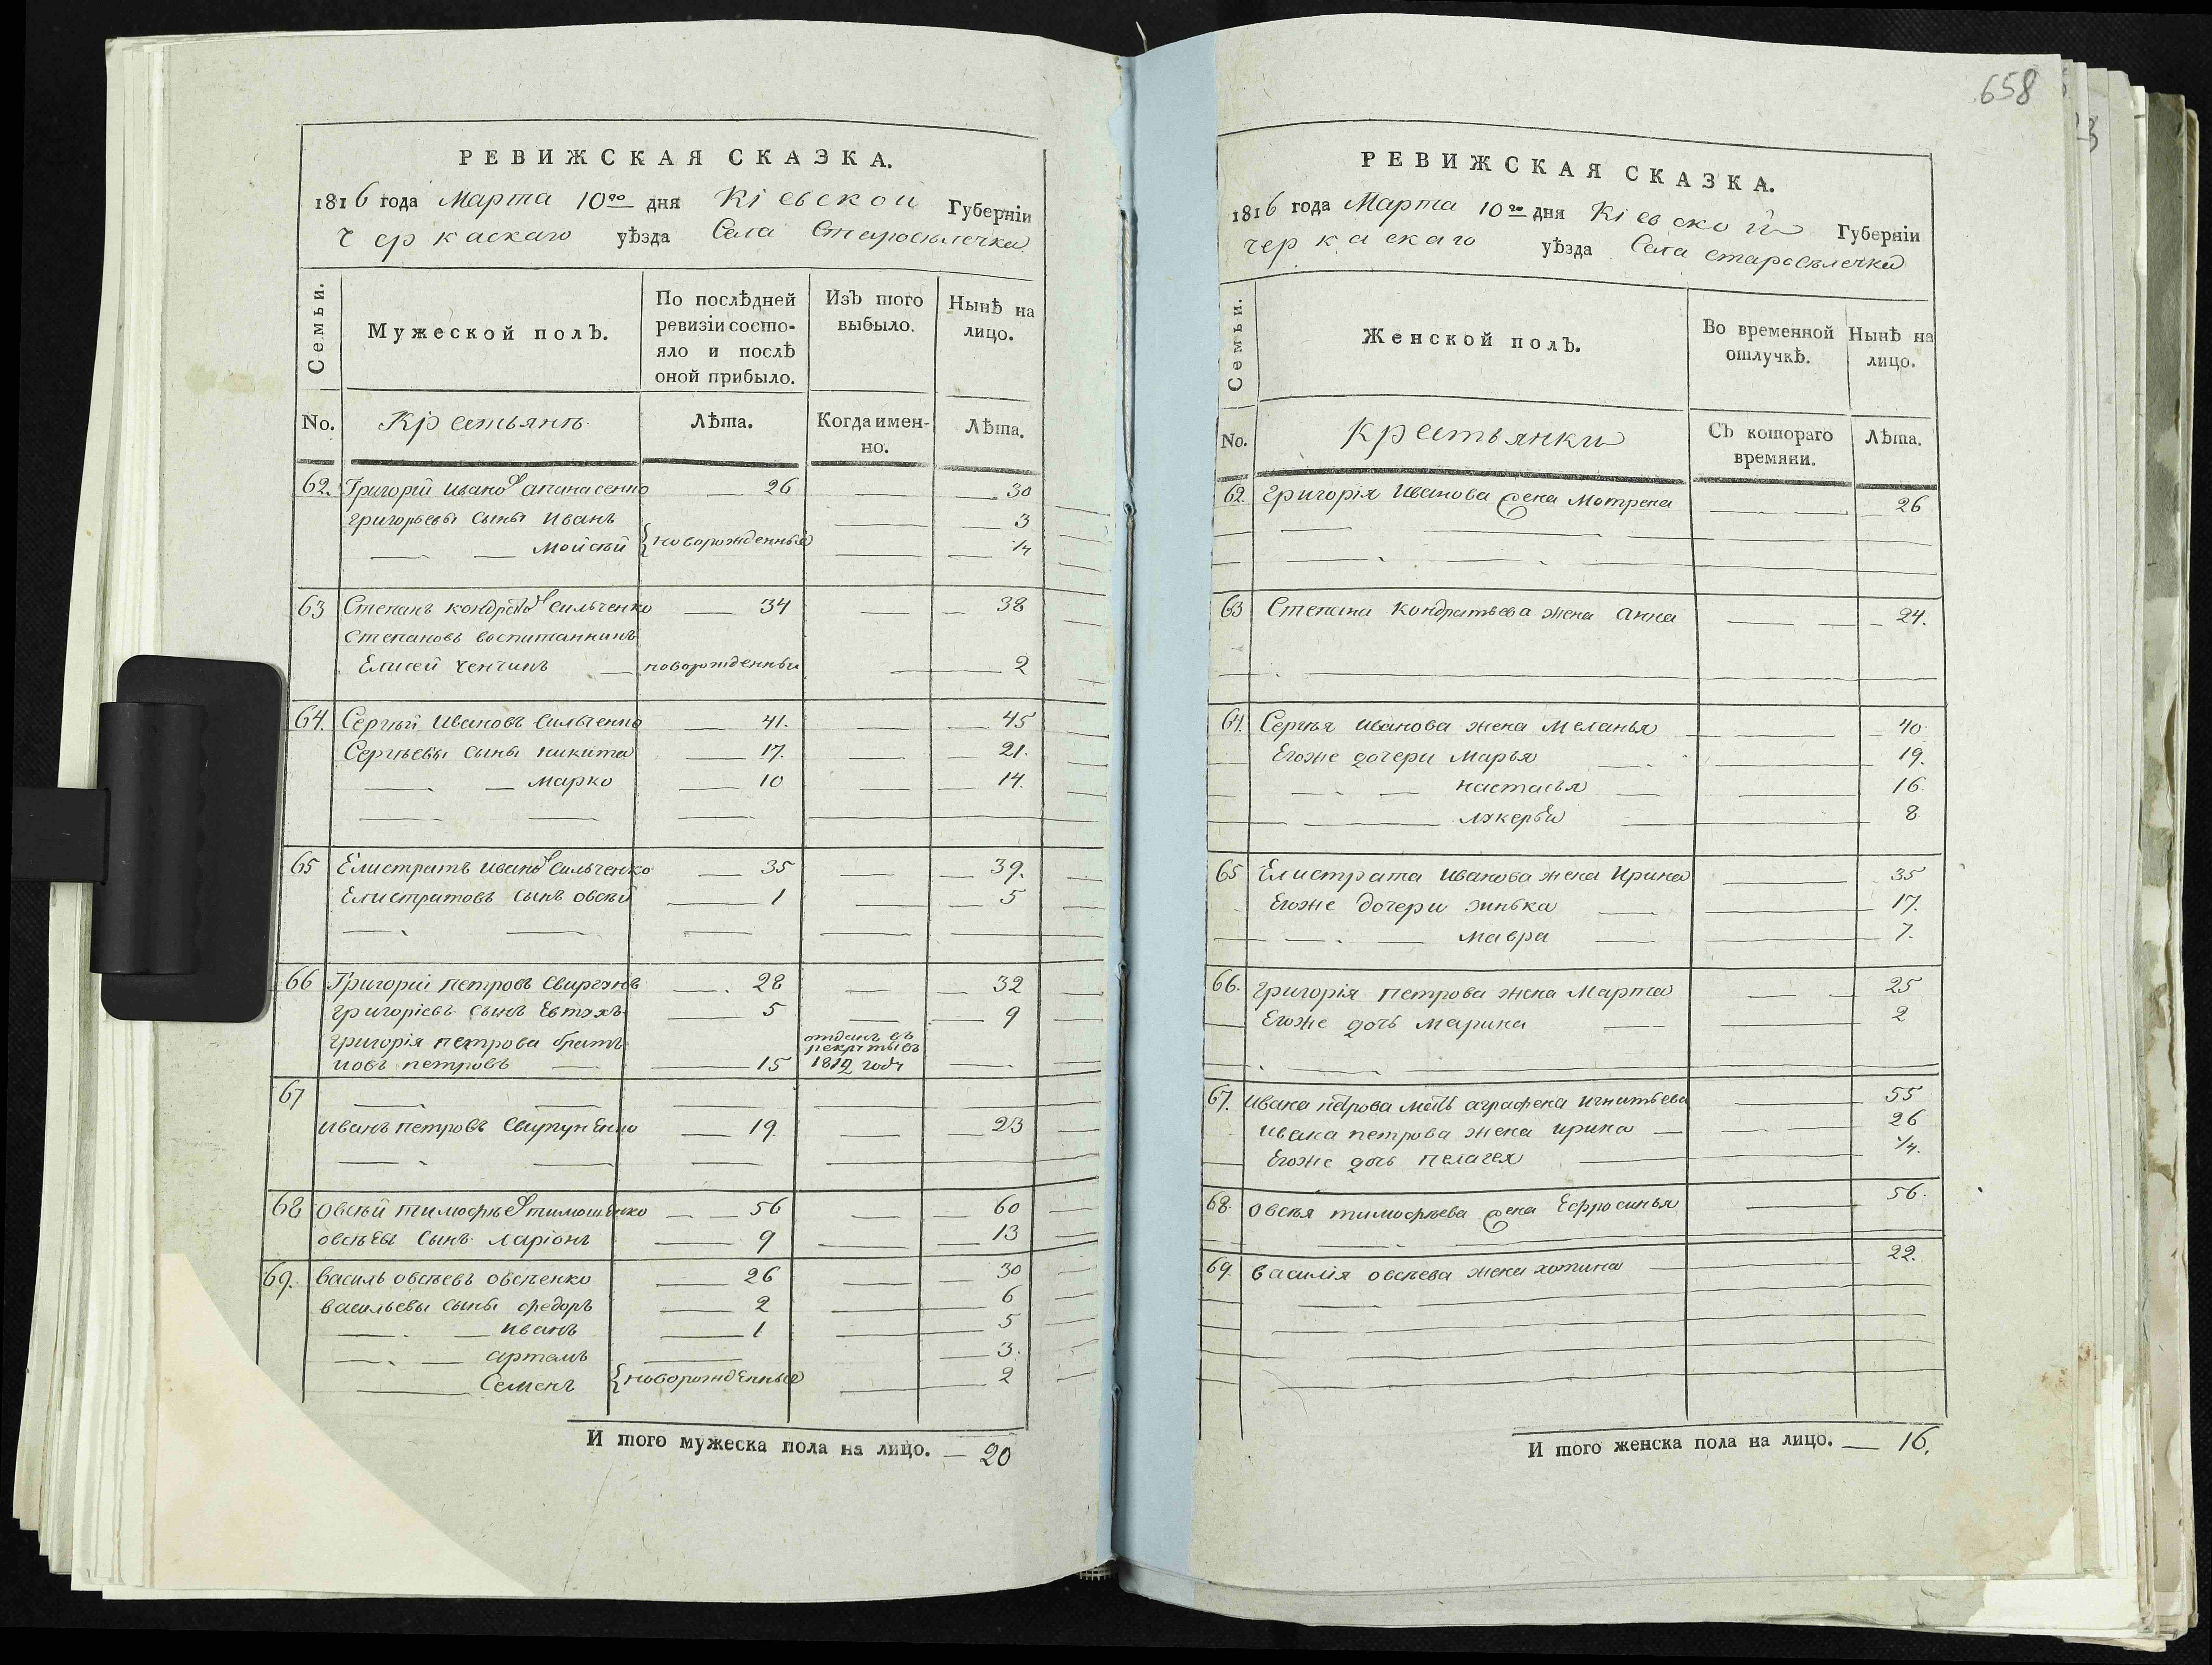 658
РЕВИЖСКАЯ СКАЗКА.
1816 года Марта 10го дня Кіевской Губерніи
Черкаскаго уѣзда Села Старосѣлечка
Семьи.
Мужеской полъ.
По послѣдней ревизіи состояло и послѣ оной прибыло.
Изъ того выбыло.
Нынѣ на лицо.
No.
Крестьянѣ
Лѣта.
Когда именно.
Лѣта.
62. Григорій Иванов Апанасенко — 26 — — 30
Григорьевы сыны Иванъ — — 3
— — Мойсѣй { новорожденные — — 1/4
63 Степанъ Кондратов Силъченко — 34 — — 38
Степановъ воспитанникъ
Елисей — новорожденный — 2
64. Сергѣй Ивановъ Силъченко — 41. — — 45
Сергѣевы сыны Никита — 17. — — 21.
— — Марко — 10 — — 14.
65 Елистратъ Иванов Силъченко — 35 — — 39.
Елистратовъ сынъ Овсѣй — 1 — — 5
66 Григорій Петровъ — 28 — 32
Григоріевъ сынъ Евтухъ — 5 — — 9
Григорія Петрова братъ
Иовъ Петровъ — — 15 отданъ въ рекруты въ 1812 году —
67
Иванъ Петровъ — 19. — — 23
68 Овсѣй Тимофѣев Тимошенко — 56 — — 60
Овсѣевъ сынъ Ларіонъ — 9 — — 13
69. Василь Овсѣевъ Овсѣенко — 26 — — 30
Васильевы сыны Федоръ — 2 — 6
— — Иванъ — 1 — 5
— — Артемъ — 3.
— Семенъ { новорожденные — 2
И того мужеска пола на лицо. — 20
РЕВИЖСКАЯ СКАЗКА.
1816 года Марта 10го дня Кіевской Губерніи
Черкаскаго уѣзда Села Старосѣлечка
Семьи.
Женской полъ.
Во временной отлучкѣ.
Нынѣ на лицо.
No.
Крестьянки
Съ котораго времяни.
Лѣта.
62. Григорія Иванова жена Мотрена — — 26
63 Степана Кондратьева жена Анна — — 24.
64. Сергѣя Иванова жена Меланья — — 40
Егоже дочери Марья — — 19.
— — Настасья — — 16.
— Лукерья — — 8
65 Елистрата Иванова жена Ирина — 35
Егоже дочери Зинька — — 17.
— — Мавра — — 7.
66. Григорія Петрова жена Марта — — 25
Егоже дочь Марина — — 2
67. Ивана Петрова мать Аграфена Игнатьева 55
Ивана Петрова жена Ирина — — 26
Егоже дочь Пелагея — 1/4.
68. Овсѣя Тимофѣева жена Ефросинья — 56.
69. Василія Овсѣева жена Хотина — 22.
И того женска пола на лицо. — 16.